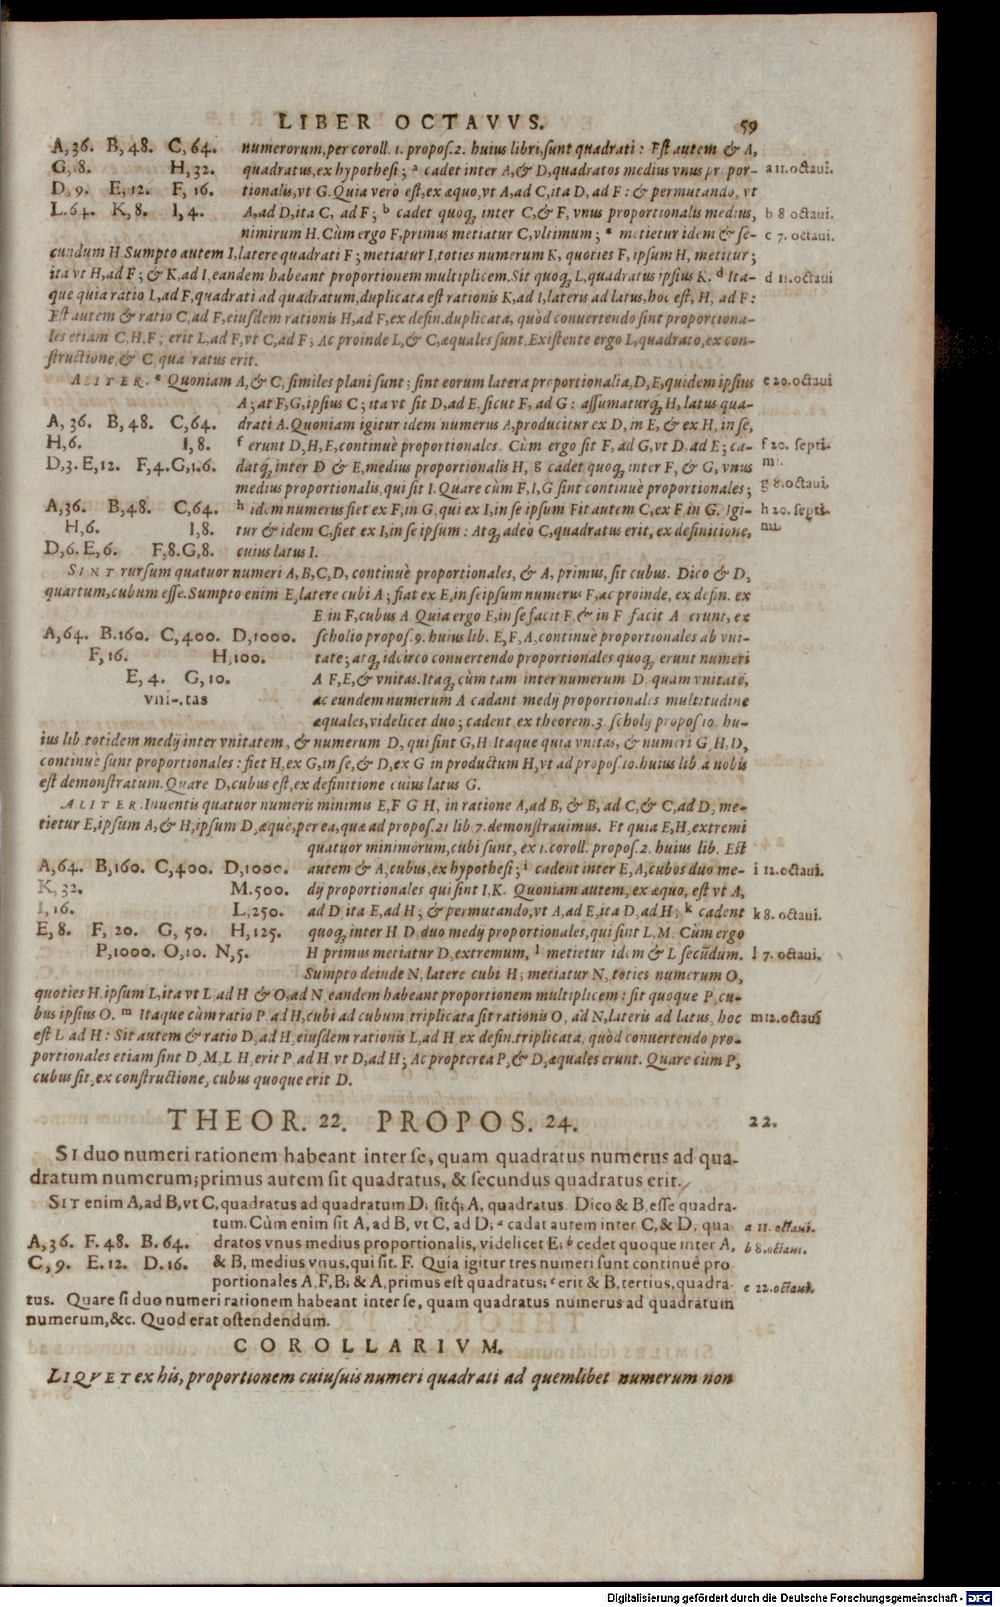 LIBER OCTAVVS. 59
A, 36. B, 48. C, 64. numerorum, per coroll. 1. propos. 2. huius libri, sunt quadrati: Est autem & A,
G, 18. H, 32. quadratus, ex hypothesi; ᵃ cadet inter A, & D, quadratos medius vnus propor- a 11. octaui.
D, 9. E, 12. F, 16. tionalis, vt G. Quia verò est, ex æquo, vt A, ad C, ita D, ad F: & permutando, vt
L. 64. K, 8. I, 4. A, ad D, ita C, ad F; ᵇ cadet quoq; inter C, & F, vnus proportionalis medius, b 8 octaui.
nimirum H. Cùm ergo F, primus metiatur C, vltimum; ᶜ metietur idem & se- c 7. octaui.
cundum H. Sumpto autem I, latere quadrati F; metiatur I, toties numerum K, quoties F, ipsum H, metitur;
ita vt H, ad F; & K, ad I, eandem habeant proportionem multiplicem. Sit quoq; L, quadratus ipsius K. ᵈ Ita- d 11. octaui
que quia ratio L, ad F, quadrati ad quadratum, duplicata est rationis K, ad I, lateris ad latus, hoc est, H, ad F:
Est autem & ratio C, ad F, eiusdem rationis H, ad F, ex defin. duplicata, quòd conuertendo sint proportiona-
les etiam C, H, F; erit L, ad F, vt C, ad F; Ac proinde L, & C, æquales sunt. Existente ergo L, quadrato, ex con-
structione, & C, quadratus erit.
ALITER. ᵉ Quoniam A, & C, similes plani sunt; sint eorum latera proportionalia, D, E, quidem ipsius e 20. octaui
A; at F, G, ipsius C; ita vt sit D, ad E, sicut F, ad G: assumaturq; H, latus qua-
A, 36. B, 48. C, 64. drati A. Quoniam igitur idem numerus A, producitur ex D, in E, & ex H, in se,
H, 6. I, 8. ᶠ erunt D, H, E, continuè proportionales. Cùm ergo sit F, ad G, vt D, ad E; ca- f 20. septi-
D, 3. E, 12. F, 4. G, 1.6. datq; inter D & E, medius proportionalis H, ᵍ cadet quoq; inter F, & G, vnus mi.
medius proportionalis, qui sit I. Quare cùm F, I, G sint continuè proportionales; g 8. octaui.
A, 36. B, 48. C, 64. ʰ idem numerus fiet ex F, in G, qui ex I, in se ipsum Fit autem C, ex F, in G. Igi- h 20. septi-
H, 6. I, 8. tur & idem C, fiet ex I, in se ipsum: Atq; adeò C, quadratus erit, ex definitione, mi.
D, 6. E, 6. F, 8. G, 8. cuius latus I.
SINT rursum quatuor numeri A, B, C, D, continuè proportionales, & A, primus, sit cubus. Dico & D,
quartum, cubum esse. Sumpto enim E, latere cubi A; fiat ex E, in seipsum numerus F, ac proinde, ex defin. ex
E in F, cubus A. Quia ergo E, in se facit F, & in F facit A erunt, ex
A, 64. B. 160. C, 400. D, 1000. scholio propos. 9. huius lib. E, F, A, continuè proportionales ab vni-
F, 16. H, 100. tate; atq; idcirco conuertendo proportionales quoq; erunt numeri
E, 4. G, 10. A F, E, & vnitas. Itaq; cùm tam inter numerum D quam vnitatē,
vni-. tas ac eundem numerum A cadant medij proportionales multitudine
æquales, videlicet duo; cadent ex theorem. 3. scholij propos 10. hu-
ius lib. totidem medij inter vnitatem, & numerum D, qui sint G, H. Itaque quia vnitas, & numeri G, H, D,
continuè sunt proportionales: fiet H, ex G, in se, & D, ex G in productum H, vt ad propos. 10. huius lib. à nobis
est demonstratum. Quare D, cubus est, ex definitione cuius latus G.
ALITER. Inuentis quatuor numeris minimis E, F G H, in ratione A, ad B, & B, ad C, & C, ad D, me-
tietur E, ipsum A, & H, ipsum D, æque, per ea, quæ ad propos. 21 lib 7. demonstrauimus. Et quia E, H, extremi
quatuor minimorum, cubi sunt, ex 1. coroll. propos. 2. huius lib. Est
A, 64. B, 160. C, 400. D, 1000. autem & A, cubus, ex hypothesi; ⁱ cadent inter E, A, cubos duo me- i 12. octaui.
K, 32. M. 500. dij proportionales qui sint I, K. Quoniam autem, ex æquo, est vt A,
I, 16. L, 250. ad D ita E, ad H; & permutando, vt A, ad E, ita D, ad H; ᵏ cadent k 8. octaui.
E, 8. F, 20. G, 50. H, 125. quoq; inter H D duo medij proportionales, qui sint L, M. Cùm ergo
P, 1000. O, 10. N, 5. H primus metiatur D, extremum, ˡ metietur idem & L secūdum. l 7. octaui.
Sumpto deinde N, latere cubi H; metiatur N, toties numerum O,
quoties H, ipsum L, ita vt L, ad H & O, ad N, eandem habeant proportionem multiplicem: sit quoque P, cu-
bus ipsius O. ᵐ Itaque cùm ratio P, ad H, cubi ad cubum, triplicata sit rationis O, ad N, lateris ad latus, hoc m 12. octaui
est L, ad H: Sit autem & ratio D, ad H, eiusdem rationis L, ad H ex defin. triplicata, quòd conuertendo pro-
portionales etiam sint D, M, L H, erit P, ad H, vt D, ad H; Ac propterea P, & D, æquales erunt. Quare cùm P,
cubus sit, ex constructione, cubus quoque erit D.
THEOR. 22. PROPOS. 24. 22.
SI duo numeri rationem habeant inter se, quam quadratus numerus ad qua-
dratum numerum; primus autem sit quadratus, & secundus quadratus erit.
SIT enim A, ad B, vt C, quadratus ad quadratum D; sitq; A, quadratus. Dico & B, esse quadra-
tum. Cùm enim sit A, ad B, vt C, ad D; ᵃ cadat autem inter C, & D, qua a 11. octaui.
A, 36. F. 48. B. 64. dratos vnus medius proportionalis, videlicet E; ᵇ cedet quoque inter A, b 8. octaui.
C, 9. E. 12. D. 16. & B, medius vnus, qui sit. F. Quia igitur tres numeri sunt continuè pro
portionales A, F, B; & A, primus est quadratus; ᶜ erit & B, tertius, quadra- c 22. octaui.
tus. Quare si duo numeri rationem habeant inter se, quam quadratus numerus ad quadratum
numerum, &c. Quod erat ostendendum.
COROLLARIVM.
LIQVET ex his, proportionem cuiusuis numeri quadrati ad quemlibet numerum non
Digitalisierung gefördert durch die Deutsche Forschungsgemeinschaft - DFG